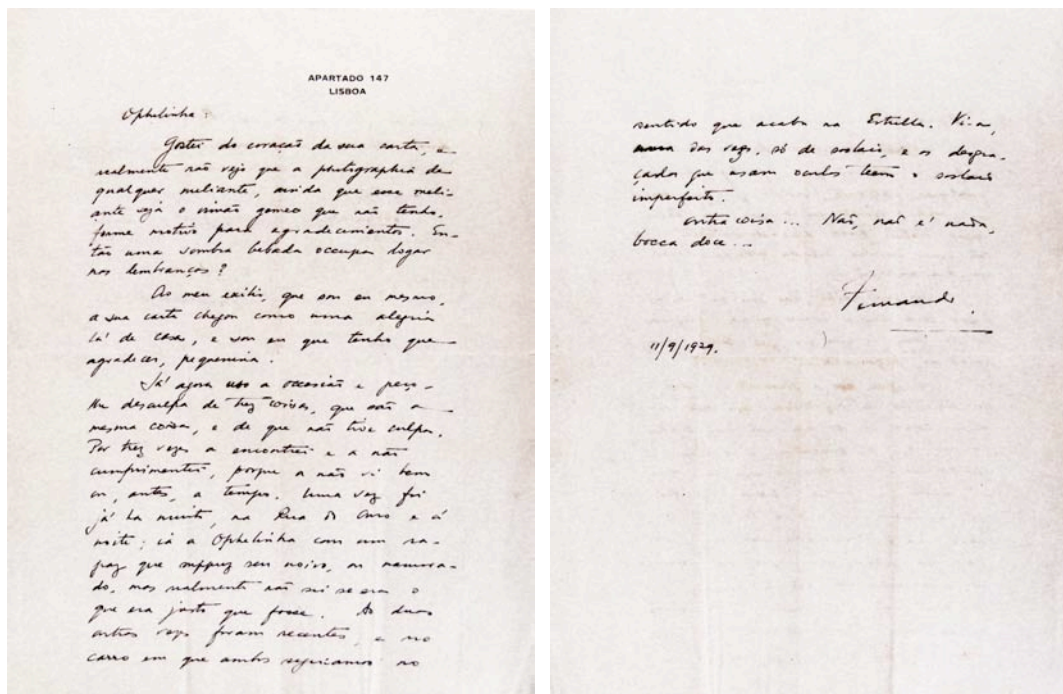 APARTADO 147
LISBOA
Ophelinha:
Gostei do coração da sua carta, e
realmente não vejo que a photographia de
qualquer meliante, ainda que esse meli-
ante seja o irmão gemeo que não tenho,
forme motivo para agradecimentos. En-
tão uma sombra bebada occupa logar
nas lembranças?
Ao meu exilio, que sou eu mesmo,
a sua carta chegou como uma alegria
lá de casa, e sou eu que tenho que
agradecer, pequenina.
Já agora uso a occasião e peço-
lhe desculpa de trez coisas, que são a
mesma coisa, e de que não tive culpa.
Por trez vezes a encontrei e a não
cumprimentei, porque a não vi bem
ou, antes, a tempo. Uma vez foi
já ha muito, na Rua do Ouro e á
noite; ia a Ophelinha com um ra-
paz que suppuz seu noivo, ou namora-
do, mas realmente não sei se era o
que era justo que fosse. As duas
outras vezes foram recentes, e no
carro em que ambos seguiamos no
sentido que acaba na Estrella. Vi-a,
uma das vezes, só de soslaio, e os desgra-
çados que usam oculos teem o soslaio
imperfeito.
Outra coisa... Não, não é nada,
bocca doce...
Fernando
11/9/1929.